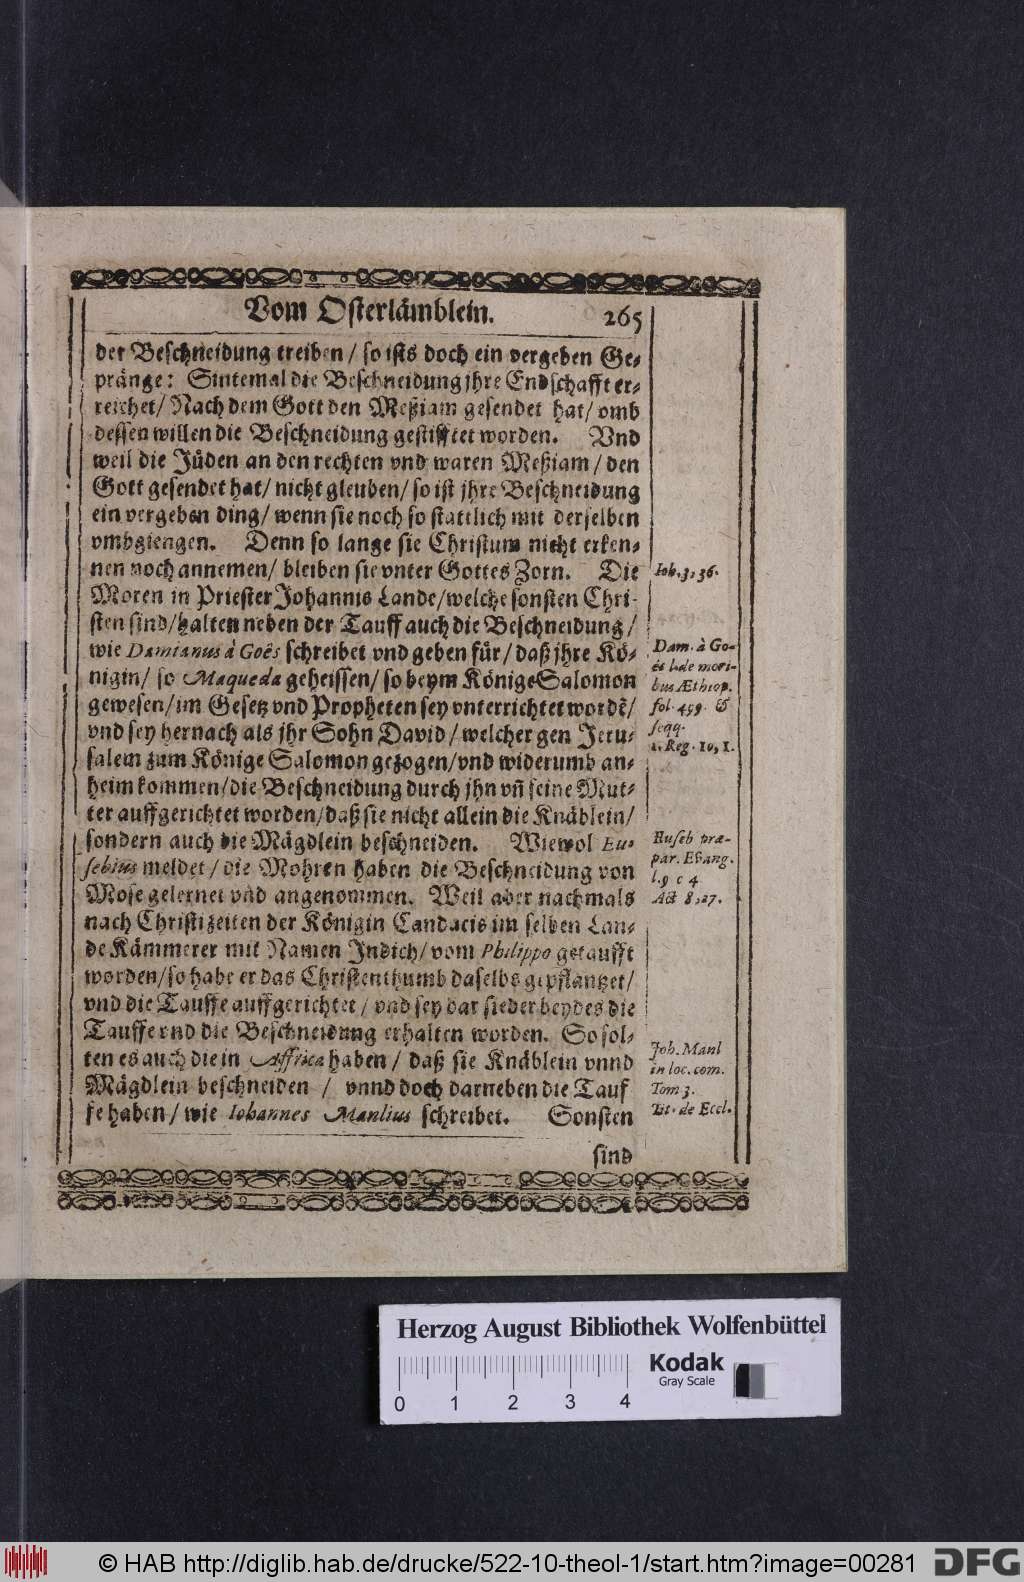 Vom Osterlämblein. 265
der Beschneidung treiben / so ists doch ein vergeben Ge-
pränge: Sintemal die Beschneidung jhre Endschafft er-
reichet / Nach dem Gott den Meßiam gesendet hat / vmb
dessen willen die Beschneidung gestifftet worden. Vnd
weil die Jüden an den rechten vnd waren Meßiam / den
Gott gesendet hat / nicht gleuben / so ist jhre Beschneidung
ein vergeben ding / wenn sie noch so stattlich mit derselben
vmbgiengen. Denn so lange sie Christum nicht erken-
nen noch annemen / bleiben sie vnter Gottes Zorn. Die
Moren in Priester Johannis Lande / welche sonsten Chri-
sten sind / halten neben der Tauff auch die Beschneidung /
wie Damianus à Goës schreibet vnd geben für / daß jhre Kö-
nigin / so Maqueda geheissen / so beym Könige Salomon
gewesen / im Gesetz vnd Propheten sey vnterrichtet wordẽ /
vnd sey hernach als jhr Sohn David / welcher gen Jeru-
salem zum Könige Salomon gezogen / vnd widerumb an-
heim kommen / die Beschneidung durch jhn vñ seine Mut-
ter auffgerichtet worden / daß sie nicht allein die Knäblein /
sondern auch die Mägdlein beschneiden. Wiewol Eu-
sebius meldet / die Mohren haben die Beschneidung von
Mose gelernet vnd angenommen. Weil aber nachmals
nach Christi zeiten der Königin Candacis im selben Lan-
de Kämmerer mit Namen Indich / vom Philippo getaufft
worden / so habe er das Christenthumb daselbs gepflantzet /
vnd die Tauffe auffgerichtet / vnd sey dar sieder beydes die
Tauffe vnd die Beschneidung erhalten worden. So sol-
ten es auch die in Affrica haben / daß sie Knäblein vnnd
Mägdlein beschneiden / vnnd doch darneben die Tauf
fe haben / wie Iohannes Manlius schreibet. Sonsten
sind
Ioh. 3, 36.
Dam. à Go-
ës l. de mori-
bus Æthiop.
fol. 499. &
seqq.
1. Reg. 10, 1.
Euseb præ-
par. Evang.
l. 9 c 4
Act 8, 27.
Joh. Manl
in loc. com.
Tom 3.
Tit. de Eccl.
Herzog August Bibliothek Wolfenbüttel
Kodak
Gray Scale
0 1 2 3 4
© HAB http://diglib.hab.de/drucke/522-10-theol-1/start.htm?image=00281
DFG